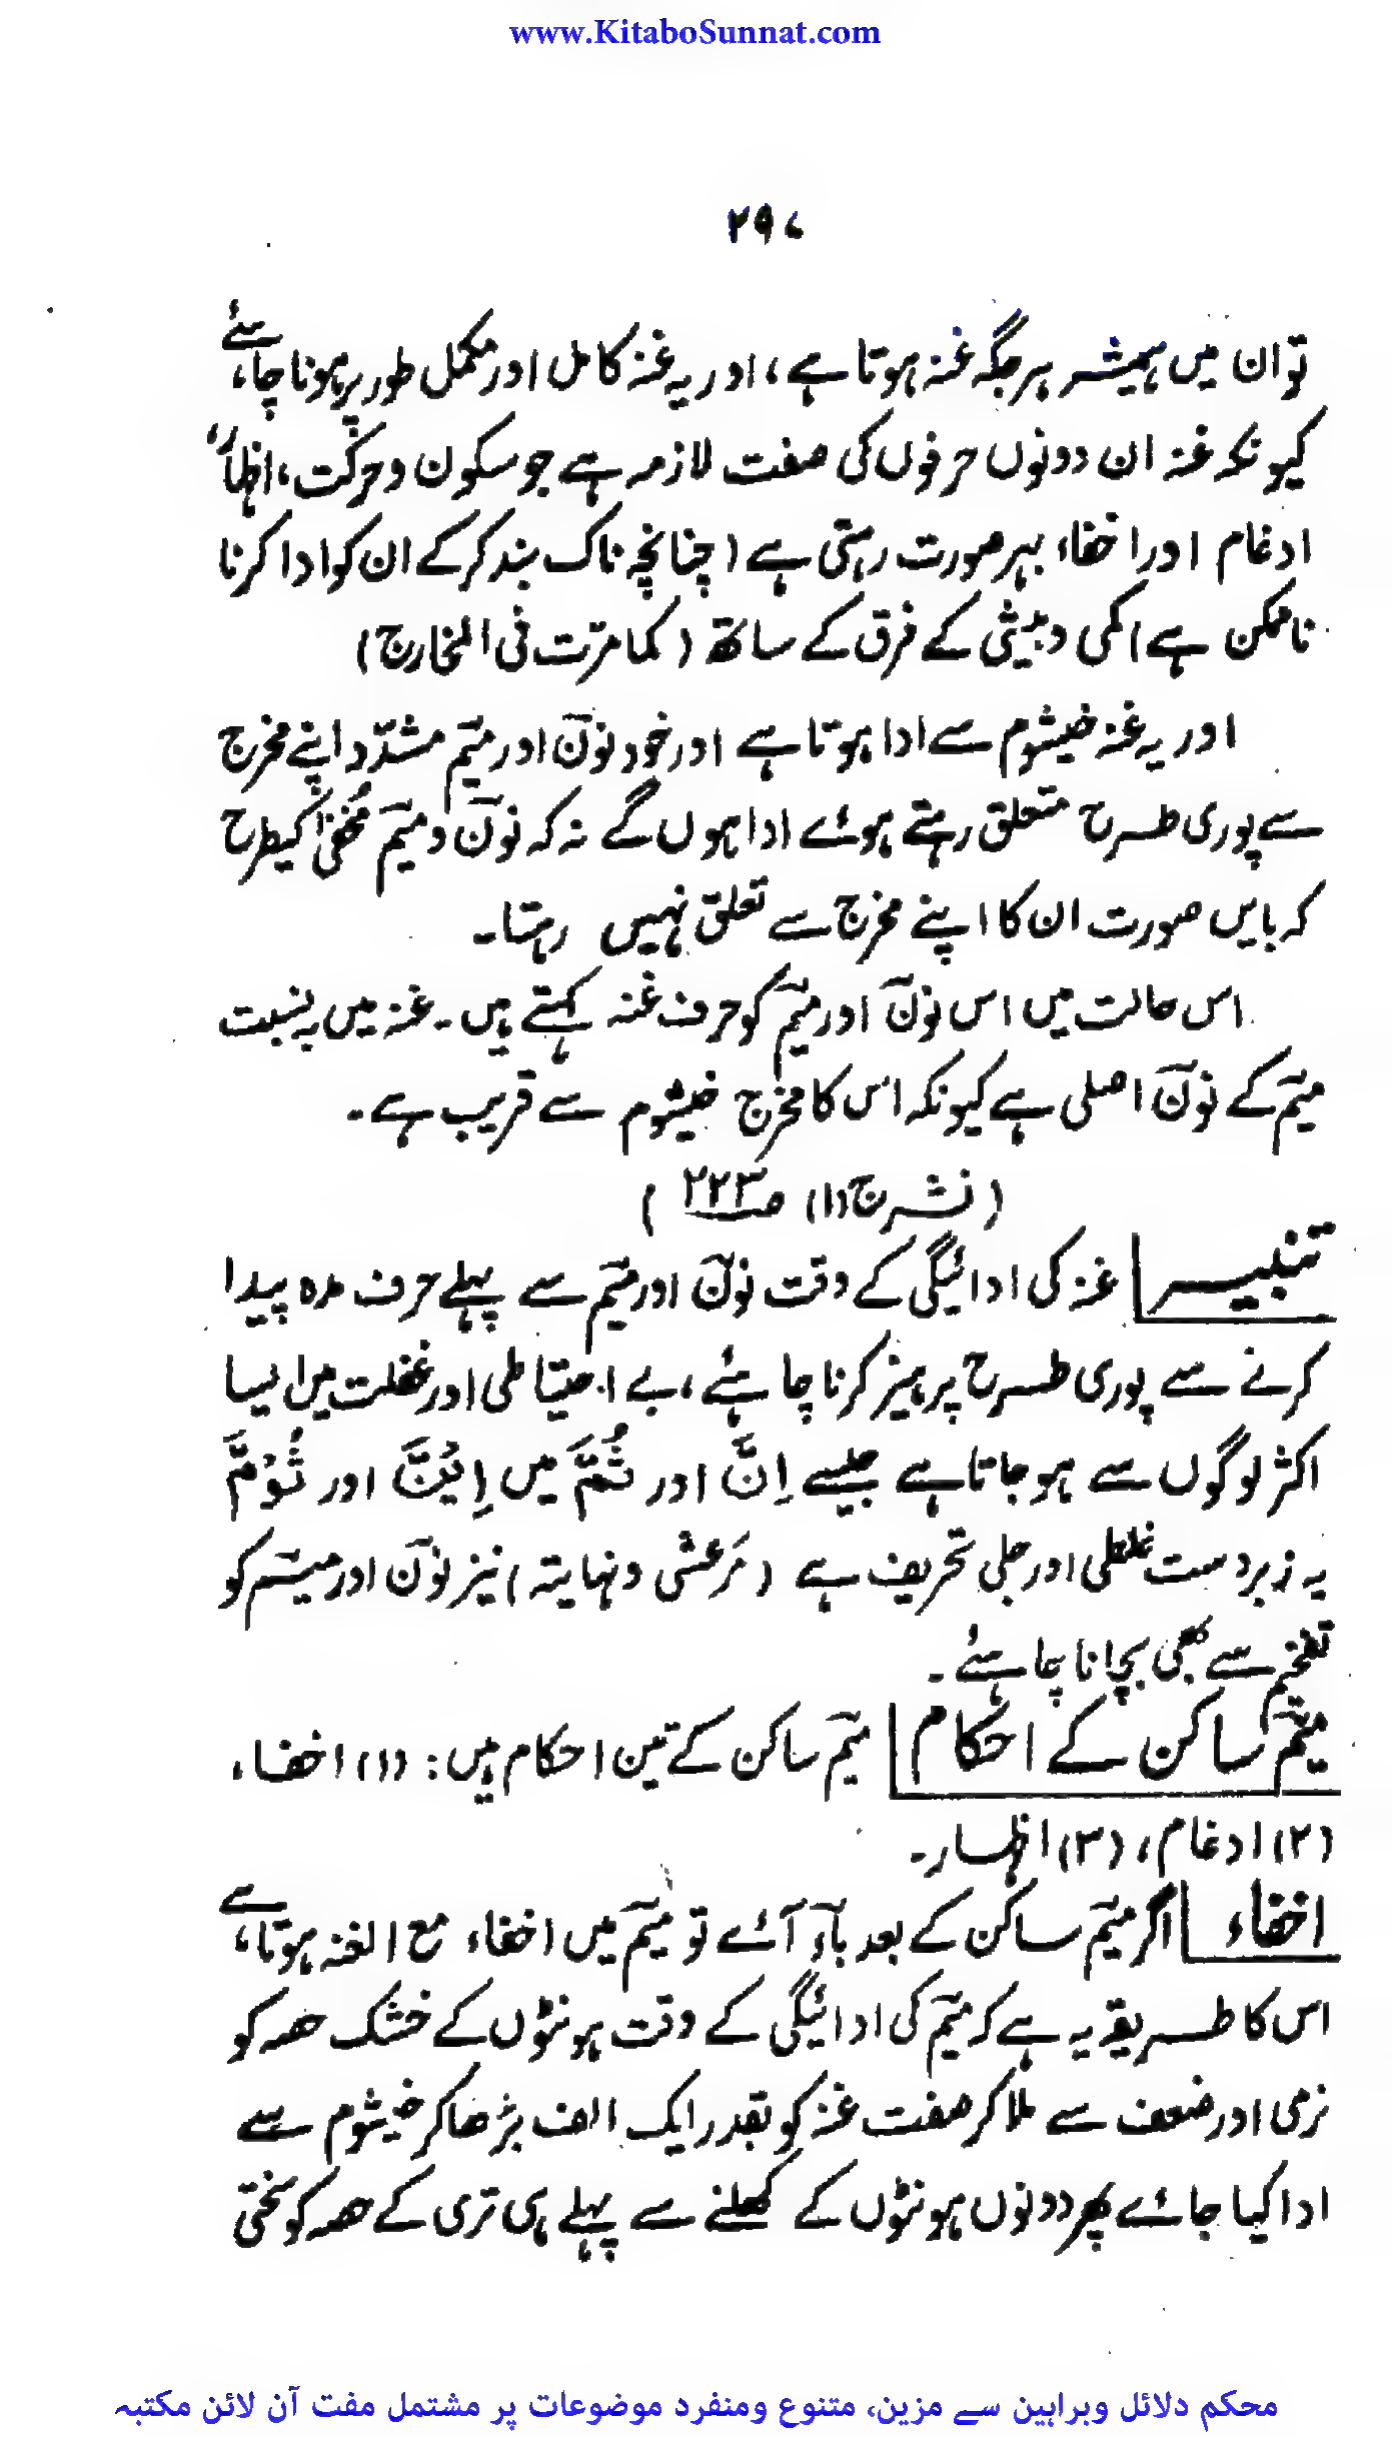 www.KitaboSunnat.com
۲۹۷
تو ان میں ہمیشہ ہر جگہ غنہ ہوتا ہے، اور یہ غنہ کامل اور مکمل طور پر ہونا چاہئے،
کیونکہ غنہ ان دونوں حرفوں کی صفت لازمہ ہے جو سکون و حرکت، اظہار،
ادغام اور اخفاء بہر صورت رہتی ہے (چنانچہ ناک بند کرکے ان کو ادا کرنا
ناممکن ہے) کمی و بیشی کے فرق کے ساتھ (کما مرّت فی المخارج)
اور یہ غنہ خیشوم سے ادا ہوتا ہے اور خود نونؔ اور میمؔ مشدّد اپنے مخرج
سے پوری طرح متعلق رہتے ہوئے ادا ہوں گے نہ کہ نونؔ و میمؔ مُخفیٰ کیطرح
کہ بایں صورت ان کا اپنے مخرج سے تعلق نہیں رہتا۔
اس حالت میں اس نونؔ اور میمؔ کو حرف غنہ کہتے ہیں۔ غنہ میں بہ نسبت
میمؔ کے نونؔ اصلی ہے کیونکہ اس کا مخرج خیشوم سے قریب ہے۔
(نشر ج (۱) صـ ۲۲۳)
تنبیہ غنہ کی ادائیگی کے وقت نونؔ اور میمؔ سے پہلے حرف مدہ پیدا
کرنے سے پوری طرح پرہیز کرنا چاہئے، بے احتیاطی اور غفلت میں ایسا
اکثر لوگوں سے ہو جاتا ہے جیسے اِنَّ اور ثُمَّ میں اِیْنَّ اور ثُوْمَّ
یہ زبردست غلطی اور جلی تحریف ہے (مَرعَشی و نہایتہ) نیز نونؔ اور میمؔ کو
تفخیم سے بھی بچانا چاہئے۔
میمؔ ساکن کے احکام میمؔ ساکن کے تین احکام ہیں: (۱) اخفاء،
(۲) ادغام، (۳) اظہار۔
اخفاء اگر میمؔ ساکن کے بعد باؔء آئے تو میمؔ میں اخفاء مع الغنہ ہوتا ہے،
اس کا طریقہ یہ ہے کہ میمؔ کی ادائیگی کے وقت ہونٹوں کے خشک حصہ کو
نرمی اور ضعف سے ملا کر صفت غنہ کو بقدر ایک الف بڑھا کر خیشوم سے
ادا کیا جائے پھر دونوں ہونٹوں کے کھلنے سے پہلے ہی تری کے حصہ کو سختی
محکم دلائل وبراہین سے مزین، متنوع ومنفرد موضوعات پر مشتمل مفت آن لائن مکتبہ